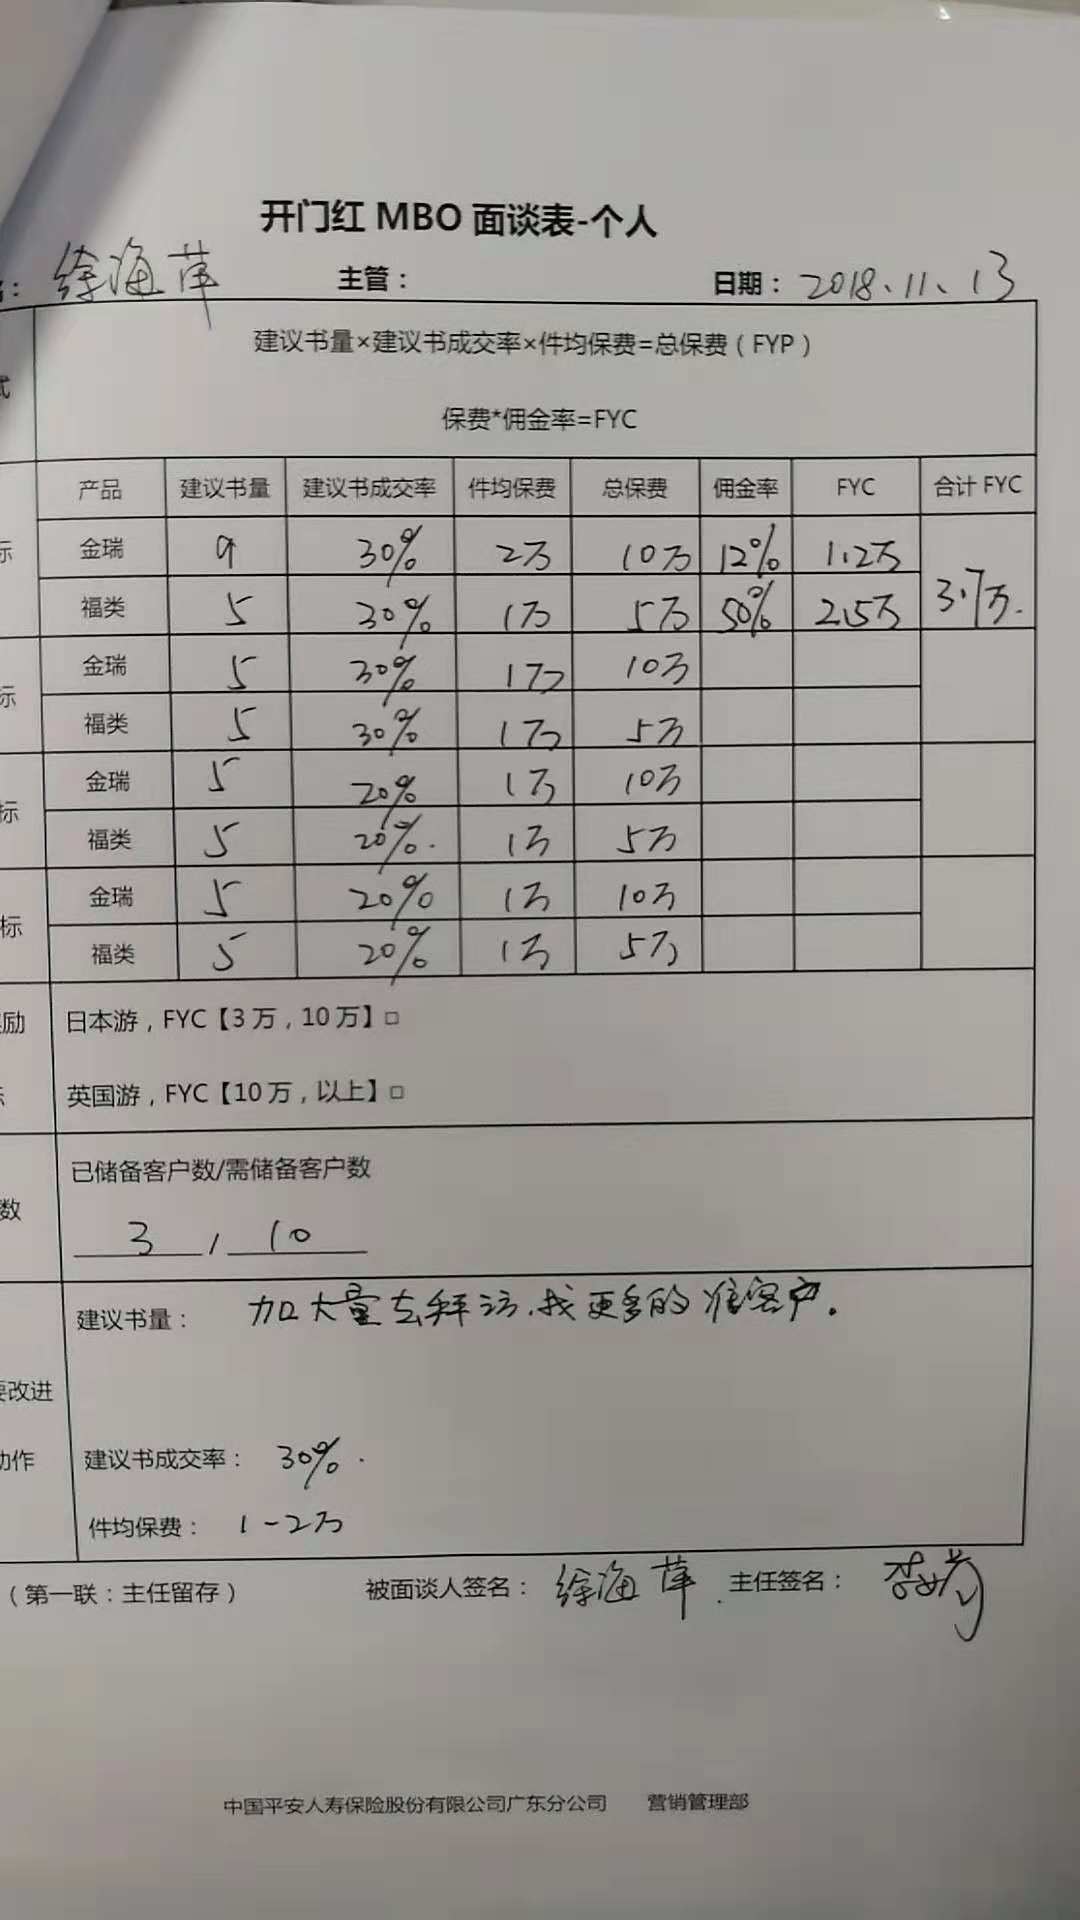 开门红 MBO 面谈表-个人
徐海萍 主管： 日期： 2018.11.13
建议书量×建议书成交率×件均保费=总保费（FYP）
保费*佣金率=FYC
产品 建议书量 建议书成交率 件均保费 总保费 佣金率 FYC 合计 FYC
标 金瑞 9 30% 2万 10万 12% 1.2万 3.7万.
福类 5 30% 1万 5万 50% 2.5万
标 金瑞 5 30% 1万 10万
福类 5 30% 1万 5万
标 金瑞 5 20% 1万 10万
福类 5 20%. 1万 5万
标 金瑞 5 20% 1万 10万
福类 5 20% 1万 5万
励 日本游，FYC【3 万，10 万】□
英国游，FYC【10 万，以上】□
已储备客户数/需储备客户数
数
3 / 10
建议书量： 加大量去拜访.找更多的准客户。
要改进
动作 建议书成交率： 30%.
件均保费： 1-2万
（第一联：主任留存） 被面谈人签名： 徐海萍. 主任签名：
中国平安人寿保险股份有限公司广东分公司 营销管理部